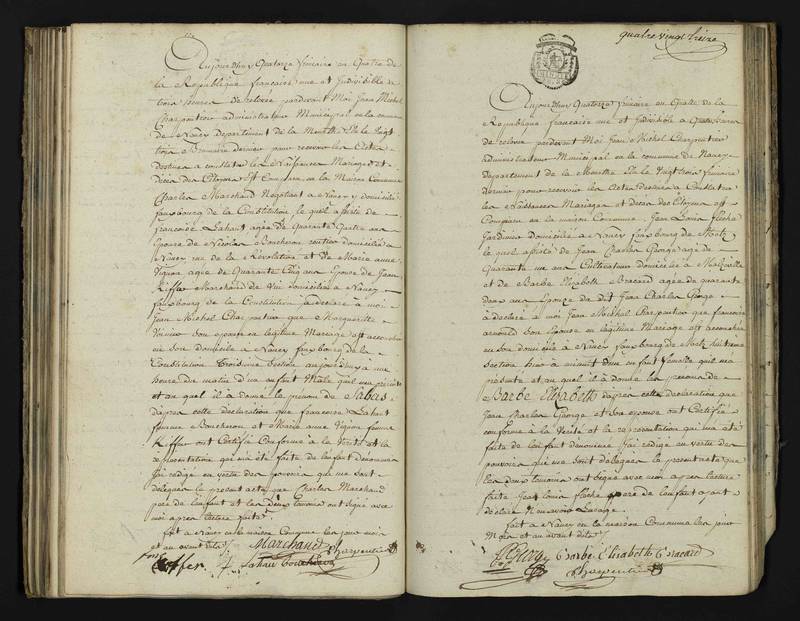 Aujourdhuy Quatorze frimaire an Quatre de
la Republique française une et Indivisible de
trois heures de relevée pardevant Moi Jean Michel
Charpentier administrateur Municipal de la commune
de Nancy Departement de la Meurthe Elu le Vingt
trois Brumaire dernier pour recevoir les Actes
destinés a constater les Naissances Mariages et
décès des Citoyens Est Comparu en la Maison Commune
Charles Marchand Negotiant a Nancy domicilié
fauxbourg de la Constitution, le quel assisté de
françoise Lahaut agée de Quarante Quatre ans
Epouse de Nicolas Boucheron rentier domicilié a
Nancy rue de la Révolution et de Marie anne
Vignon agée de Quarante Cinq ans Epouse de Jean
Kiffer Marchand de Vin domiciliée a Nancy
fauxbourg de la Constitution a déclaré a moi
Jean Michel Charpentier que Marguerite
son epouse en legitime Mariage est accouchée
en son domicile a Nancy fauxbourg de la
Constitution Troisieme Section aujourdhuy a une
heure du matin d'un enfant Male quil me présente
et au quel il a donné le prenom de
dapres cette déclaration que francoise Lahaut
femme Boucheron et Marie anne Vignon femme
Kiffer ont Certifié Conforme à la Vérité et la
représentation qui m'a été faite de l'enfant dénommé
J'ai rédigé en vertu des pouvoirs qui me sont
délégués le présent acte que Charles Marchand
pere de l'enfant et les deux temoins ont signé avec
moi apres lecture faite.
fait a Nancy en la maison Commune les jour mois
et an avant dits
Marchand Charpentier
Kiffer f Lahaut boucheron
quatre vingt treize
Aujourdhuy Quatorze frimaire an Quatre de la
Republique francaise une et Indivisible a Quatre heures
de relevée pardevant Moi Jean Michel Charpentier
administrateur Municipal de la commune de Nancy
Departement de la Meurthe Elu le Vingt trois Brumaire
dernier pour recevoir les Actes destinés a Constater
les Naissances Mariages et décès des Citoyens est
Comparu en la maison Commune Jean Louis
Jardinier Domicilié a Nancy fauxbourg de Metz
le quel assisté de Jean Charles George agé de
Quarante un ans Cultivateur domicilié à Malzéville
et de Barbe Elizabeth Bracard agée de quarante
deux ans Epouze du dit Jean Charles George
a déclaré a moi Jean Michel Charpentier que francoise
son Epouse en legitime Mariage est accouchée
en son domicile a Nancy fauxbourg de Metz huitieme
Section hier a minuit d'un enfant femelle quil m'a
présenté et au quel il à donné les prenoms de
Barbe Elizabeth dapres cette déclaration que
Jean Charles George et son epouse ont Certifié
conforme à la Verité et la representation qui m'a été
faite de l'enfant denommé J'ai redigé en vertu des
pouvoirs qui me sont délégués le présent acte que
les deux temoins ont signé avec moi apres lecture
faite Jean Louis pere de l'enfant ayant
déclaré N'en avoir L'usage.
fait a Nancy en la maison Commune les jour
Mois et an avant dits
Barbe Elizabeth Bracard
Charpentier